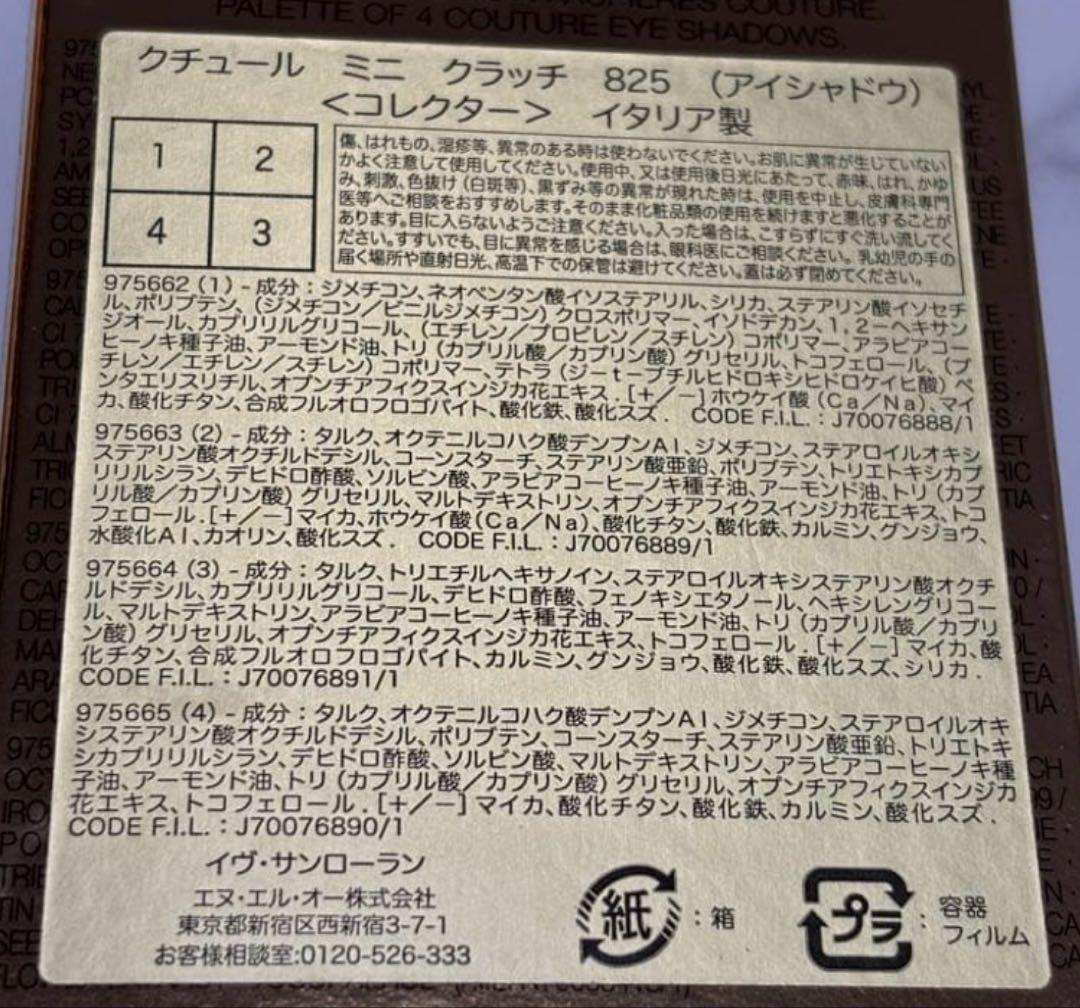 PALETTE OF 4 COUTURE EYE SHADOWS.
クチュール ミニ クラッチ 825 (アイシャドウ)
<コレクター> イタリア製
1 2
4 3
傷、はれもの、湿疹等、異常のある時は使わないでください。お肌に異常が生じていない
かよく注意して使用してください。使用中、又は使用後日光にあたって、赤味、はれ、かゆ
み、刺激、色抜け(白斑等)、黒ずみ等の異常が現れた時は、使用を中止し、皮膚科専門
医等へご相談をおすすめします。そのまま化粧品類の使用を続けますと悪化することが
あります。目に入らないようご注意ください。入った場合は、こすらずにすぐ洗い流してく
ださい。すすいでも、目に異常を感じる場合は、眼科医にご相談ください。乳幼児の手の
届く場所や直射日光、高温下での保管は避けてください。蓋は必ず閉めてください。
975662 (1) - 成分:ジメチコン、ネオペンタン酸イソステアリル、シリカ、ステアリン酸イソセチ
ル、ポリブテン、(ジメチコン/ビニルジメチコン)クロスポリマー、イソドデカン、1,2-ヘキサン
ジオール、カプリリルグリコール、(エチレン/プロピレン/スチレン)コポリマー、アラビアコー
ヒーノキ種子油、アーモンド油、トリ(カプリル酸/カプリン酸)グリセリル、トコフェロール、(ブ
チレン/エチレン/スチレン)コポリマー、テトラ(ジ-t-ブチルヒドロキシヒドロケイヒ酸)ペ
ンタエリスリチル、オプンチアフィクスインジカ花エキス.[+/-]ホウケイ酸(Ca/Na)、マイ
カ、酸化チタン、合成フルオロフロゴパイト、酸化鉄、酸化スズ. CODE F.I.L.:J70076888/1
975663 (2) - 成分:タルク、オクテニルコハク酸デンプンAl、ジメチコン、ステアロイルオキシ
ステアリン酸オクチルドデシル、コーンスターチ、ステアリン酸亜鉛、ポリブテン、トリエトキシカプ
リリルシラン、デヒドロ酢酸、ソルビン酸、アラビアコーヒーノキ種子油、アーモンド油、トリ(カプ
リル酸/カプリン酸)グリセリル、マルトデキストリン、オプンチアフィクスインジカ花エキス、トコ
フェロール.[+/-]マイカ、ホウケイ酸(Ca/Na)、酸化チタン、酸化鉄、カルミン、グンジョウ、
水酸化Al、カオリン、酸化スズ. CODE F.I.L.:J70076889/1
975664 (3) - 成分:タルク、トリエチルヘキサノイン、ステアロイルオキシステアリン酸オクチ
ルドデシル、カプリリルグリコール、デヒドロ酢酸、フェノキシエタノール、ヘキシレングリコー
ル、マルトデキストリン、アラビアコーヒーノキ種子油、アーモンド油、トリ(カプリル酸/カプリ
ン酸)グリセリル、オプンチアフィクスインジカ花エキス、トコフェロール.[+/-]マイカ、酸
化チタン、合成フルオロフロゴパイト、カルミン、グンジョウ、酸化鉄、酸化スズ、シリカ.
CODE F.I.L.:J70076891/1
975665 (4) - 成分:タルク、オクテニルコハク酸デンプンAl、ジメチコン、ステアロイルオキ
システアリン酸オクチルドデシル、ポリブテン、コーンスターチ、ステアリン酸亜鉛、トリエトキ
シカプリリルシラン、デヒドロ酢酸、ソルビン酸、マルトデキストリン、アラビアコーヒーノキ種
子油、アーモンド油、トリ(カプリル酸/カプリン酸)グリセリル、オプンチアフィクスインジカ
花エキス、トコフェロール.[+/-]マイカ、酸化チタン、酸化鉄、カルミン、酸化スズ.
CODE F.I.L.:J70076890/1
イヴ・サンローラン
エヌ・エル・オー株式会社
東京都新宿区西新宿3-7-1
お客様相談室:0120-526-333
紙:箱
プラ:容器
フィルム